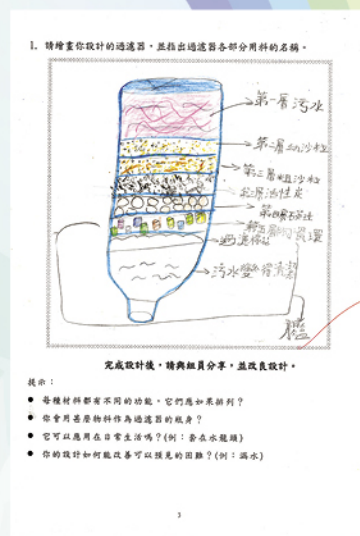 1. 請繪畫你設計的過濾器，並指出過濾器各部分用料的名稱。
第一層污水
第二層幼沙粒
第三層粗沙粒
活性炭
過濾棉
污水變背清潔
完成設計後，請與組員分享，並改良設計。
提示：
● 每種材料都有不同的功能，它們應如果排列？
● 你會用甚麼物料作為過濾器的瓶身？
● 它可以應用在日常生活嗎？(例：套在水龍頭)
● 你的設計如何能改善可以預見的困難？(例：漏水)
3